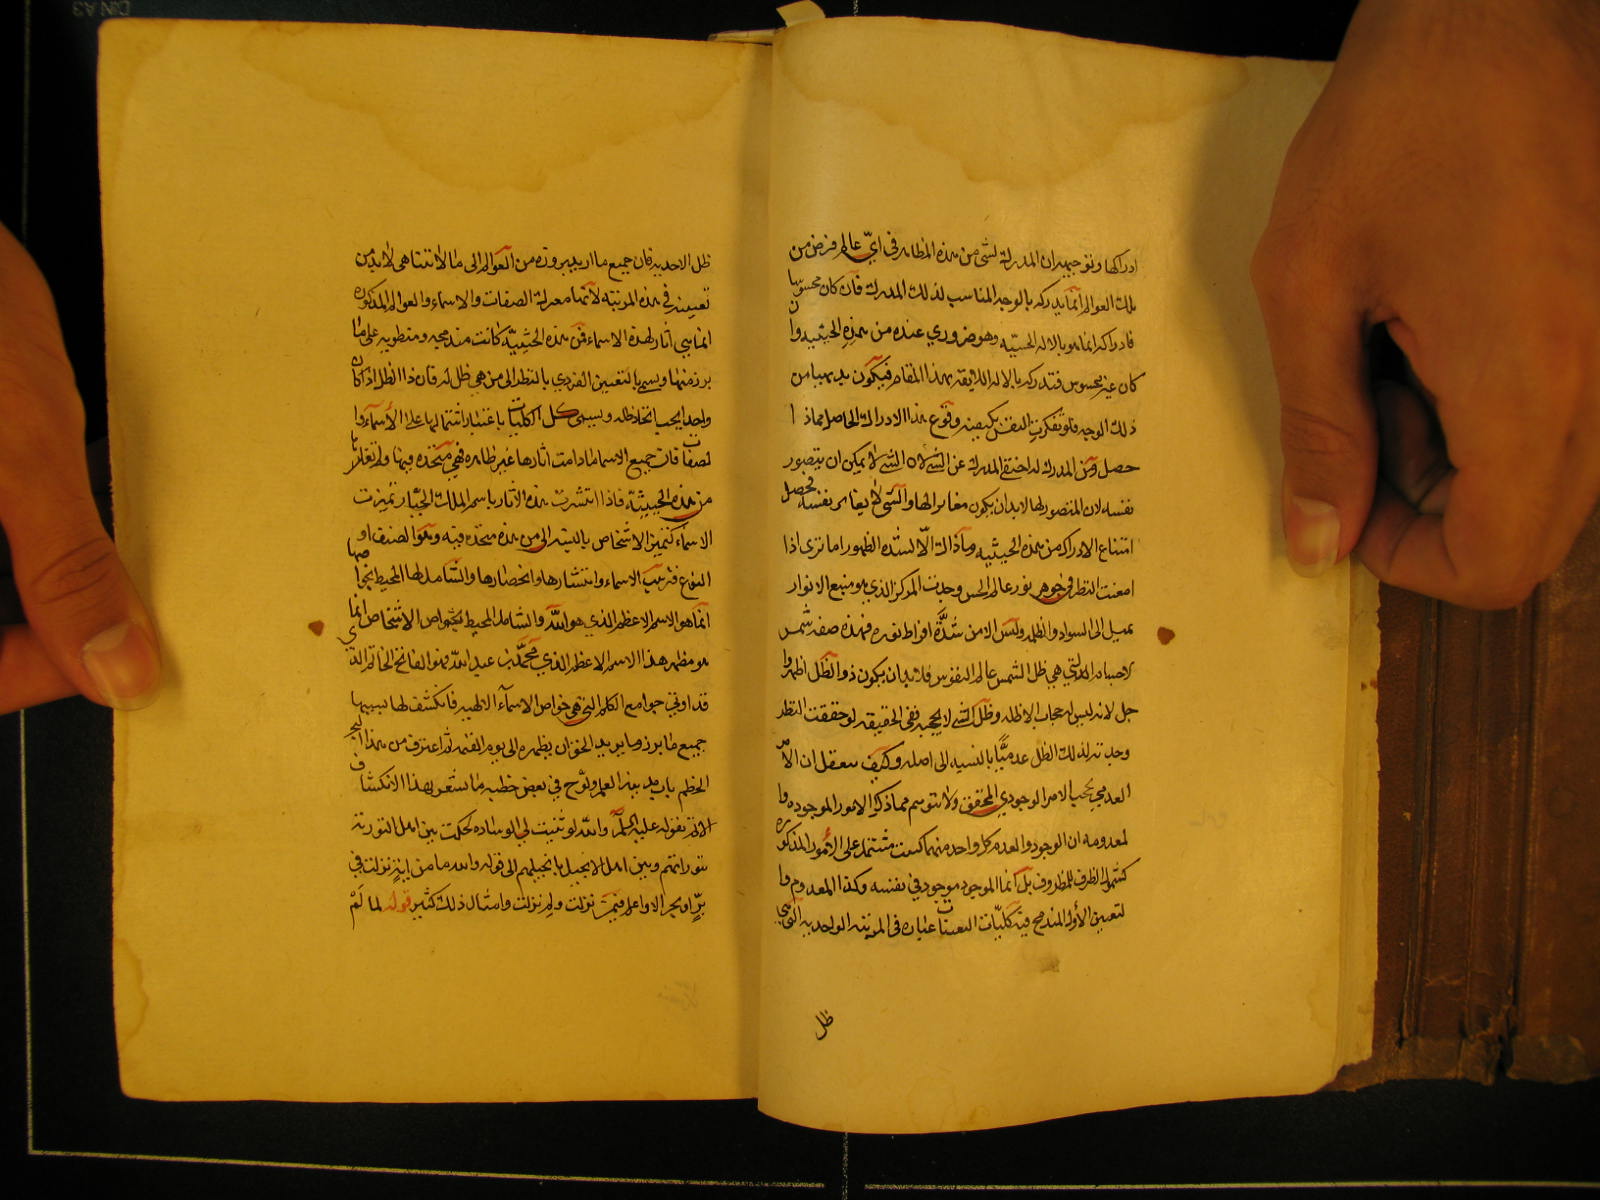 ادراكها وتوجيهه ان المدرك لشئ من هذه المظاهر في ايّ عالم فرض من
تلك العوالم انما يدركه بالوجه المناسب لذلك المدرك فان كان محسوسا
فادراكه انما هو بالاله الحسيّه وهو ضروري عنده من هذه الحيثيه وان
كان غير محسوس فتدركه بالاله اللايقه بهذا المقام فيكون بديهيا من
ذلك الوجه فلو تفكرت النفس بكيفيه وقوع هذا الادراك الحاصل مما ذا
حصل ومن المدرك له اختفى المدرك عن الشي لان الشي لا يمكن ان يتصور
نفسه لان المتصور لها لابد ان يكون مغايرا لها والشي لا يغاير نفسه فحصل
امتناع الادراك من هذه الحيثيه وما ذاك الّا لشدّه الظهور اما ترى اذا
امعنت النظر في جوهر نور عالم الحس وجدت المركز الذي هو منبع الانوار
يميل الى السواد والظلمه وليس الا من شدَّة افراط نوره فهذه صفه شمس
الاجسام التي هي ظل الشمس عالم النفوس فلابد ان يكون ذو الظل اظهر وا
جل لانه ليس له حجاب الاظله وظل الشي لا يحجبه ففي الحقيقه لو حققت النظر
وجدته لذلك الظل عدميًّا بالنسبه الى اصله وكيف يعقل ان الامر
العدمي يحجب الامر الوجودي المحقق ولا تتوهم مما ذكر الامور الموجوده وا
لمعدومه ان الوجود والعدم كل واحد منهما كيف مشتمل على الامور المذكوره
كشمول الظرف للمظروف بل انما الموجود موجود في نفسه وكذا المعدوم وا
لتعين الأول المندمج فيه كليّات التعينات عباره في المرتبه الواحديه التي هي
ظل
ظل الاحديه فان جميع ما اريد بروزه من العوالم الى ما لا تتناهى لابد من
تعيينه في هذه المرتبه لانها معركة الصفات والاسماء والعوالم المذكوره
انما هي آثار لهذة الاسماء فمن هذه الحيثيّه كانت مندمجه ومنطويه على ما
برز منها ويسمى بالتعيين الفردي بالنظر الى من هي ظل له فان ذا الظل اذا كان
واحدا يجب اتحاد ظله ويسمى كل الكليات باعتبار اشتمالها على الأسماء وا
لصفات فان جميع الاسما ما دامت آثارها غير ظاهره فهي متحده فيها ولم تغاير
من هذه الحيثيّه فاذا انتشرت هذه الآثار باسم الملك الجبّار تميزت
الاسماء كتميز الاشخاص بالنسبه الى من هذه متحده فيه وهو الصنف او
النوع فترتيب الاسماء وانتشارها وانحصارها والشامل لها المحيط بخواصها
انما هو الاسم الاعظم الذي هو الله والشامل المحيط بخواص الاشخاص انما
هو مظهر هذا الاسم الاعظم الذي محمّد بن عبد الله فهو الفاتح الخاتم الذي
قد اوتي جوامع الكلم التي هي خواص الاسمآء الالهيه فانكشف لها بسببها
جميع ما برز وما يريد الحق ان يظهره الى يوم القيمه ثم اغترف من هذا البحر
الخظم باب مدينه العلم ولوّح في بعض خطبه ما يشعر بهذا الانكشاف
الاتم بقوله عليه السلم والله لو ثنيت لي الوساده لحكمت بين اهل التوريه
بتوراتهم وبين اهل الانجيل بانجيلهم الى قوله والله ما من ايةٍ نزلت في
برٍّ او بحر الا واعلم فيمن نزلت ولم نزلت وامثال ذلك كثير قوله لما لَمْ